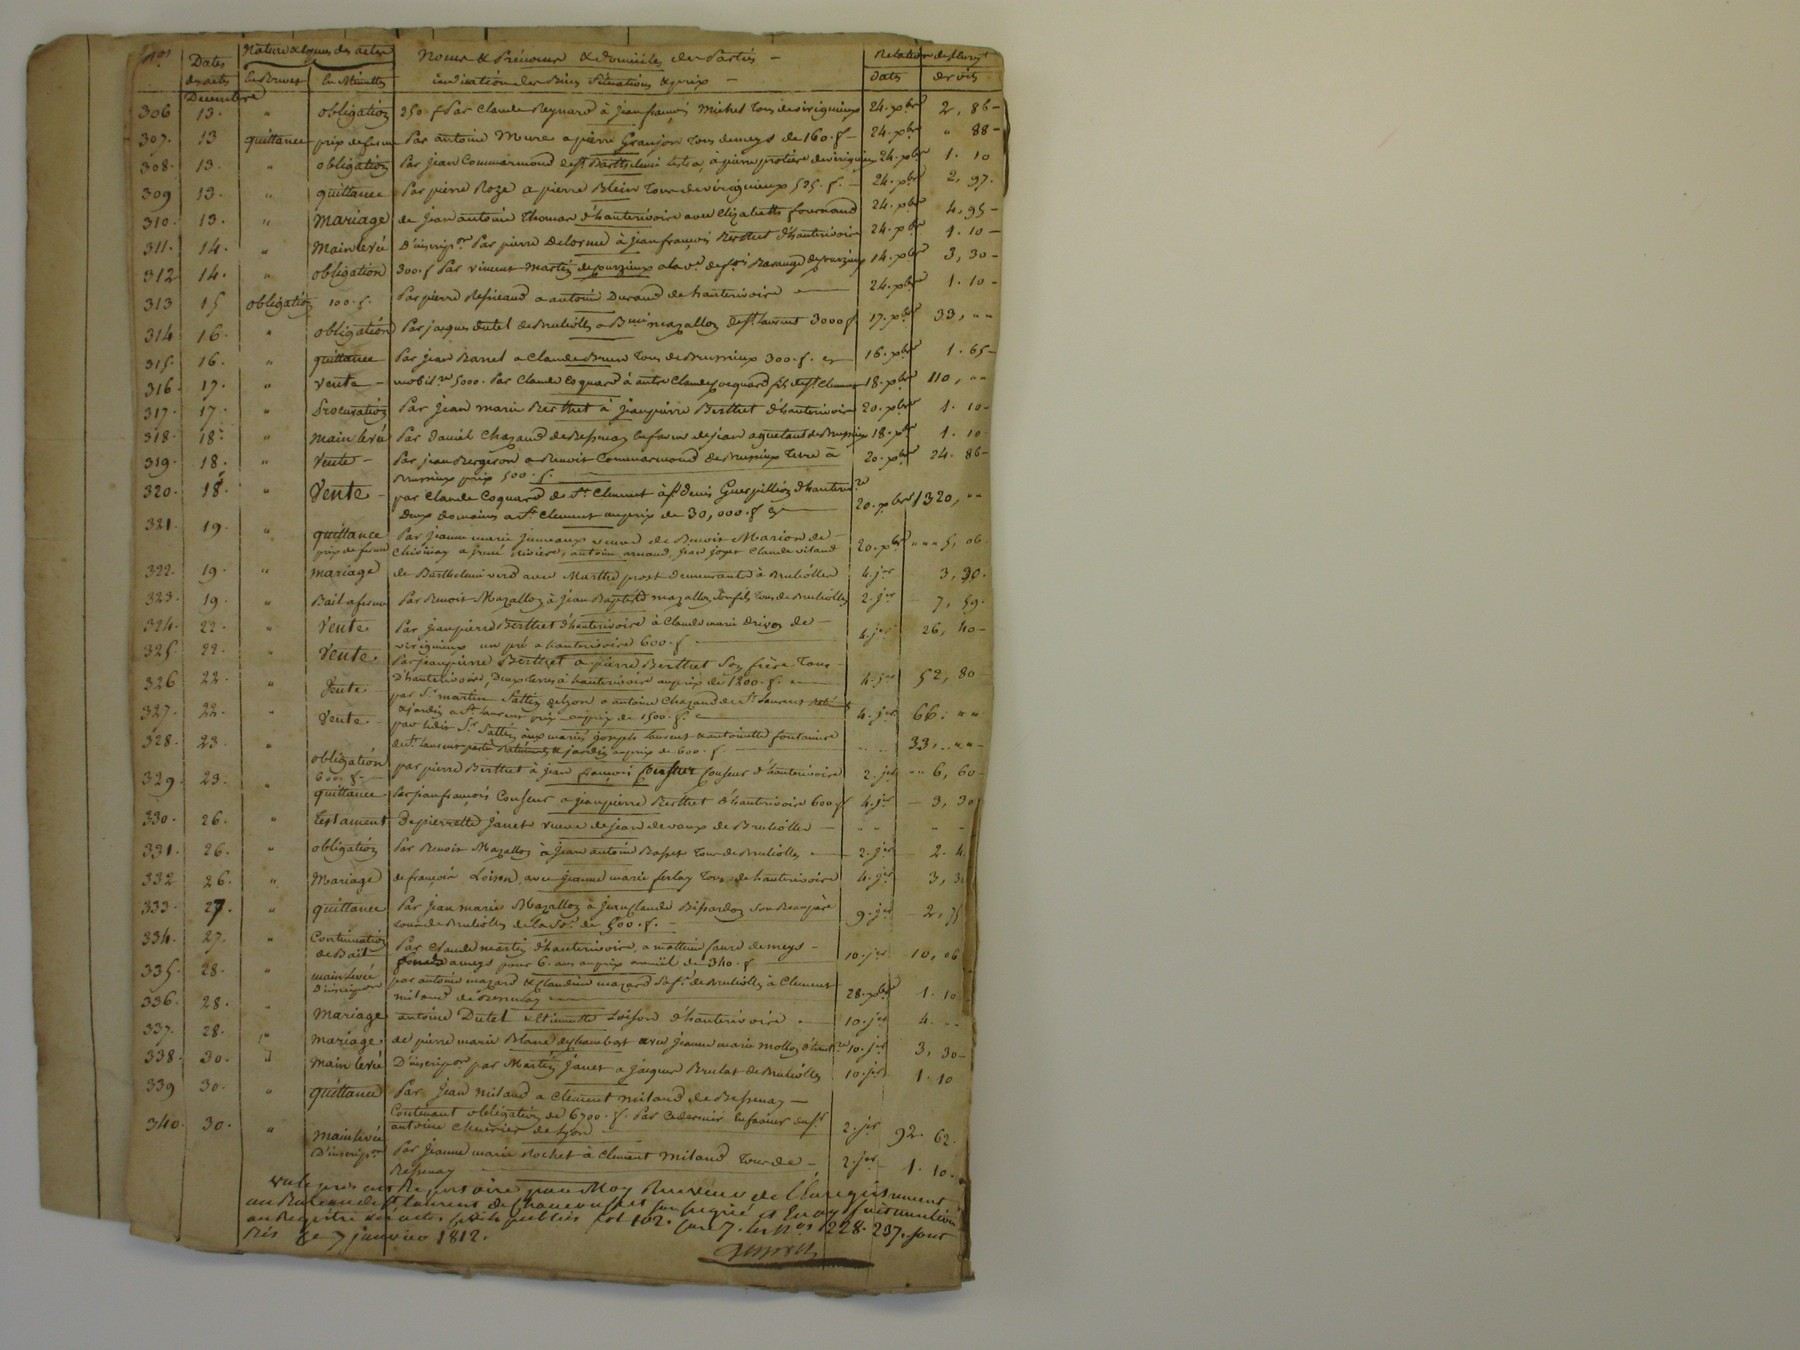 Nos Dates des actes Nature & espèces des actes Noms & Prénoms & domiciles des Parties - Relation de l'enregt
En Brevet En Minutte indication des Biens Situation & prix - Dates droits
Decembre
306 13. " obligation 250. f Par Claude Reynard à jean françois Michel Tous de virigneux 24. xbre 2, 86 -
307. 13 quittance prix de ferme Par antoine Mure a pierre Granjon Tous de meys de 160. f - 24. xbre " 88 -
308. 13. " obligation Par jean Commarmond de St Barthelemi à pierre protiere de virigneux 24. xbre 1. 10
309 13. " quittance Par pierre Roze a pierre Blein Tous de virigneux 525. f. - 24. xbre 2, 97.
310. 13. " Mariage de jean antoine Thomas d'hauterivoire avec Elizabeth fournand 24. xbre 4, 95 -
311. 14. " Mainlevée D'inscripon Par pierre Delorme à jean françois Berthet d'hauterivoire 24. xbre 1. 10 -
312 14. " obligation 300. f Par vincent Martin de souzieux a la ve de fois Barange de souzieux 14. xbre 3, 30 -
313 15 obligation 100. f. Par pierre a antoine Durand de hauterivoire 24. xbre 1. 10 -
314 16. " obligation Par jacques dutel de Brulliolles a Bmi mazallon de St laurent 3000 f. 17. xbre 33, " "
315. 16. " quittance Par jean Barrel a Claude Brun Tous de Brussieux 300. f. 16. xbre 1. 65 -
316. 17. " Vente - mobilre 5000. Par Claude Coquard à autre Claude Cocquard fils de St Clement 18. xbre 110, " "
317. 17. " Procuration Par jean marie Berthet à jean pierre Berthet d'hauterivoire 20. xbre 1. 10 -
318. 18. " main levée Par daniel Chazaud de Bessenay En faveur de jean aguetant de Brussieux 18. xbre 1. 10.
319. 18. " Vente - Par jean Bergeron a Benoit Commarmond de Brussieux Terre à 20. xbre 24. 86 -
Brussieux prix 500. f.
320. 18. " Vente - par Claude Coquard de St Clement à St denis Guerpillion d'hauterivre
Deux domaines a St Clement au prix de 30,000. f 20. xbre 1320, " "
321. 19. " quittance Par jeanne marie veuve de Benoit Marion de -
prix de ferme a riviere, antoine arnaud, jean joyet Claude vilaud 20. xbre " " " 5, 06.
322. 19. " mariage de Barthelemi verd avec Marthe prost demeurants à Brulliolles 4. jer 3, 30.
323. 19. " Bail a ferme Par Benoit Mazallon à jean Baptiste mazallon son fils Tous de Brulliolles 2. jer 7, 59.
324. 22. " Vente Par jean pierre Berthet d'hauterivoire à Claude marie drivon de - 4. jer 26, 40 -
virigneux un pré a hauterivoire 600. f
325 22. " Vente. Par jean pierre Berthet a pierre Berthet Son frère Tous -
D'hauterivoire, Deux terres à hauterivoire au prix de 1200. f. 4. jer 52, 80 -
326 22. " Vente par Sr martin Sattin de lyon a antoine Chazaud de St Laurent
& jardin a St laurent prix au prix de 1500. f. 4. jer 66. " "
327. 22. " Vente - par ledit Sr Sattin aux mariés joseph laurent & antoinette fontaine
de St laurent partie Batiments & jardin au prix de 600. f. " " 33, " " -
328. 23. " obligation 600. f - par pierre Berthet à jean françois Conseur d'hauterivoire 2. jer " " 6, 60 -
329. 23. " quittance Par jean françois Conseur a jean pierre Berthet d'hauterivoire 600. f 4. jer - 3, 30
330. 26. " testament De pierrette janet veuve de jean devaux de Brulliolles - " " " -
331. 26. " obligation Par Benoit Mazallon à jean antoine Basset Tous de Brulliolles - 2. jer - 2. 4
332 26. " Mariage de françois Loison, avec jeanne marie ferlay Tous de hauterivoire 4. jer 3, 3
333. 27. " quittance Par jean marie Mazallon a jean claude Bissardon son Beaupère
Tous de Brulliolles de la Se de 500. f. 9. jer - 2, 75
334. 27. " Continuation de Bail Par Claude martin d'hauterivoire, a mathieu faure de meys -
fonds a meys pour 6. ans au prix annuel de 340. f 10. jer - 10, 06
335. 28. " main levée D'inscripon par antoine mazard & Claudine mazard Sa fe de Brulliolles à Clement
milaud de Bessenay 28. xbre 1. 10
336. 28. " Mariage antoine Dutel & Etiennette Loison d'hauterivoire 10. jer 4. " "
337. 28. " mariage. de pierre marie Blanc de chambost avec jeanne marie mollon d'hautre 10. jer 3, 30 -
338. 30. " Main levée D'inscripon par Martin janet a jacques Brulas de Brulliolles 10. jer 1. 10
339 30. " quittance Par jean Milaud a Clement milaud de Bessenay -
Contenant obligation de 6700. f. Par Ce dernier En faveur du Sr
antoine Cherier de lyon 2. jer 92. 62.
340. 30. " Main levée D'inscripon Par jeanne marie Rochet à Clement Milaud Tous de -
Bessenay 2. jer - 1. 10.
Vu le present Repertoire par Moy Receveur de l'Enregistrement
au Bureau de St laurent de Chamousset soussigné et En ay fait mention
au Registre des actes publics fol 102. Case 7. les Nos 228. 237. sont
Ris Ce 7 janvier 1812.